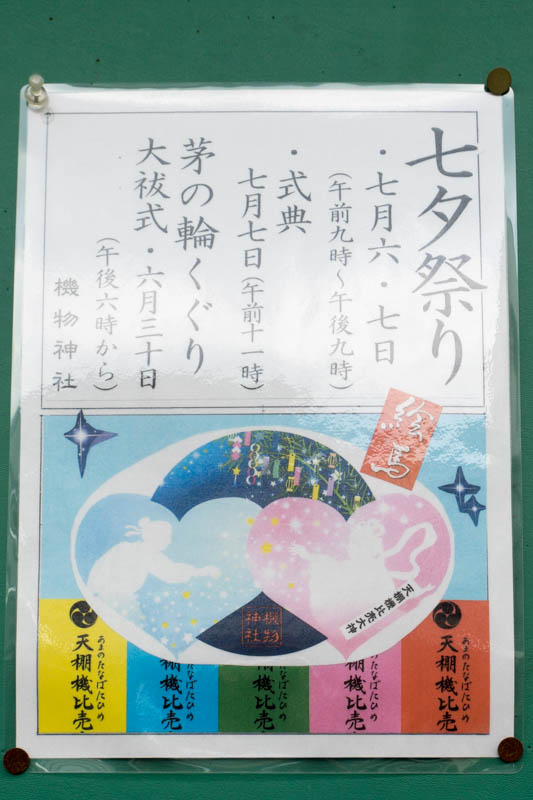 七夕祭り
・七月六・七日
(午前九時～午後九時)
・式典
七月七日(午前十一時)
茅の輪くぐり
大祓式・六月三十日
(午後六時から)
機物神社
絵馬
天棚機比売大神
機物
神社
天棚機比売
あまのたなばたひめ
棚機比売
たなばたひめ
棚機比売
棚機比売
たなばたひめ
天棚機比売
あまのたなばたひめ